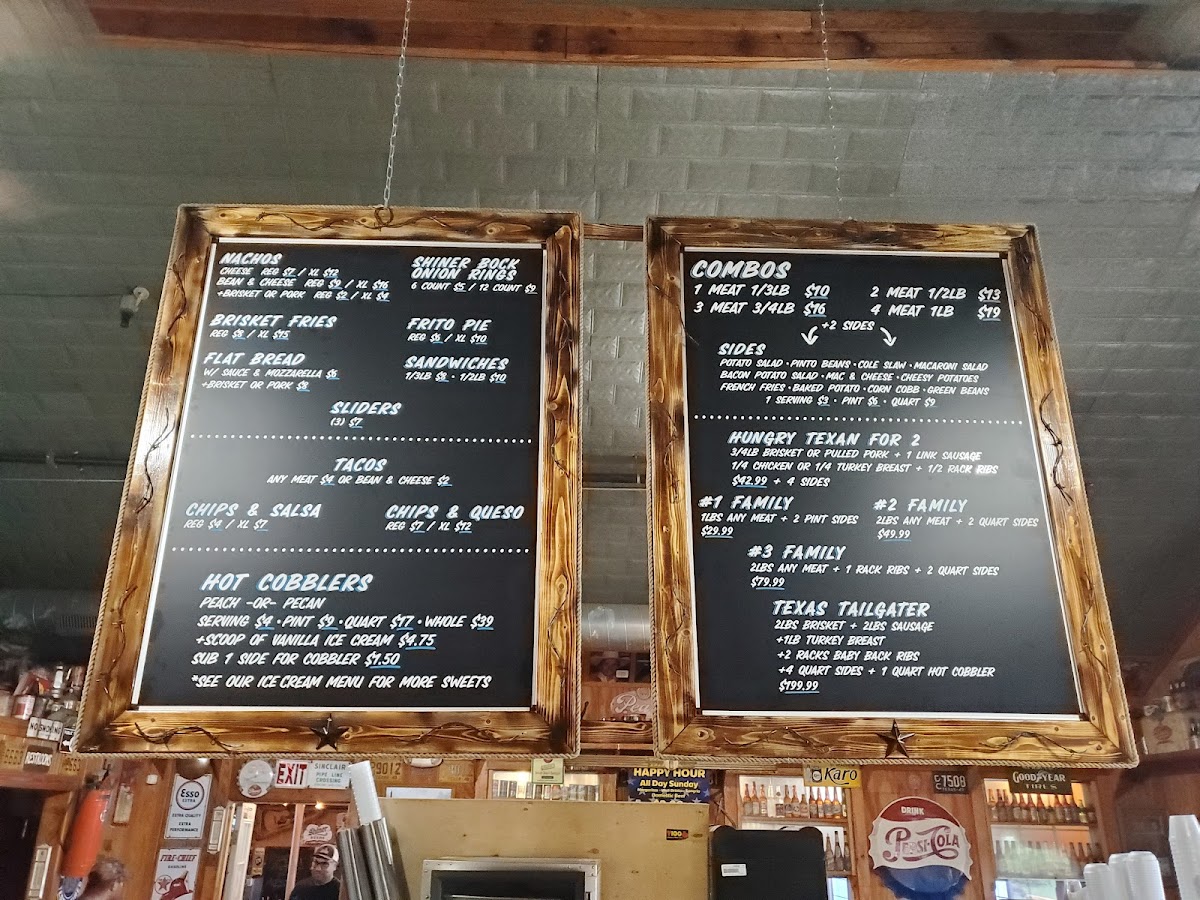 NACHOS
CHEESE REG $7 / XL $12
BEAN & CHEESE REG $9 / XL $16
+BRISKET OR PORK REG $2 / XL $4
SHINER BOCK
ONION RINGS
6 COUNT $5 / 12 COUNT $9
BRISKET FRIES
REG $8 / XL $15
FRITO PIE
REG $6 / XL $10
FLAT BREAD
W/ SAUCE & MOZZARELLA $6
+BRISKET OR PORK $8
SANDWICHES
1/3LB $8 • 1/2LB $10
SLIDERS
(3) $7
TACOS
ANY MEAT $4 OR BEAN & CHEESE $2
CHIPS & SALSA
REG $4 / XL $7
CHIPS & QUESO
REG $7 / XL $12
HOT COBBLERS
PEACH -OR- PECAN
SERVING $4 • PINT $9 • QUART $17 • WHOLE $39
+SCOOP OF VANILLA ICE CREAM $4.75
SUB 1 SIDE FOR COBBLER $1.50
*SEE OUR ICE CREAM MENU FOR MORE SWEETS
COMBOS
1 MEAT 1/3LB $10
2 MEAT 1/2LB $13
3 MEAT 3/4LB $16
4 MEAT 1LB $19
+2 SIDES
SIDES
POTATO SALAD • PINTO BEANS • COLE SLAW • MACARONI SALAD
BACON POTATO SALAD • MAC & CHEESE • CHEESY POTATOES
FRENCH FRIES • BAKED POTATO • CORN COBB • GREEN BEANS
1 SERVING $3 • PINT $6 • QUART $9
HUNGRY TEXAN FOR 2
3/4LB BRISKET OR PULLED PORK + 1 LINK SAUSAGE
1/4 CHICKEN OR 1/4 TURKEY BREAST + 1/2 RACK RIBS
$42.99 + 4 SIDES
#1 FAMILY
1LBS ANY MEAT + 2 PINT SIDES
$29.99
#2 FAMILY
2LBS ANY MEAT + 2 QUART SIDES
$49.99
#3 FAMILY
2LBS ANY MEAT + 1 RACK RIBS + 2 QUART SIDES
$79.99
TEXAS TAILGATER
2LBS BRISKET + 2LBS SAUSAGE
+1LB TURKEY BREAST
+2 RACKS BABY BACK RIBS
+4 QUART SIDES + 1 QUART HOT COBBLER
$199.99
NO SMOKING
RESTROOMS
Esso
EXTRA
EXTRA QUALITY
EXTRA
PERFORMANCE
FIRE-CHIEF
GASOLINE
EXIT
SINCLAIR
PIPE LINE
CROSSING
HAPPY HOUR
All Day Sunday
Domestic Beer
Karo
GOODYEAR
TIRES
DRINK
PEPSI-COLA